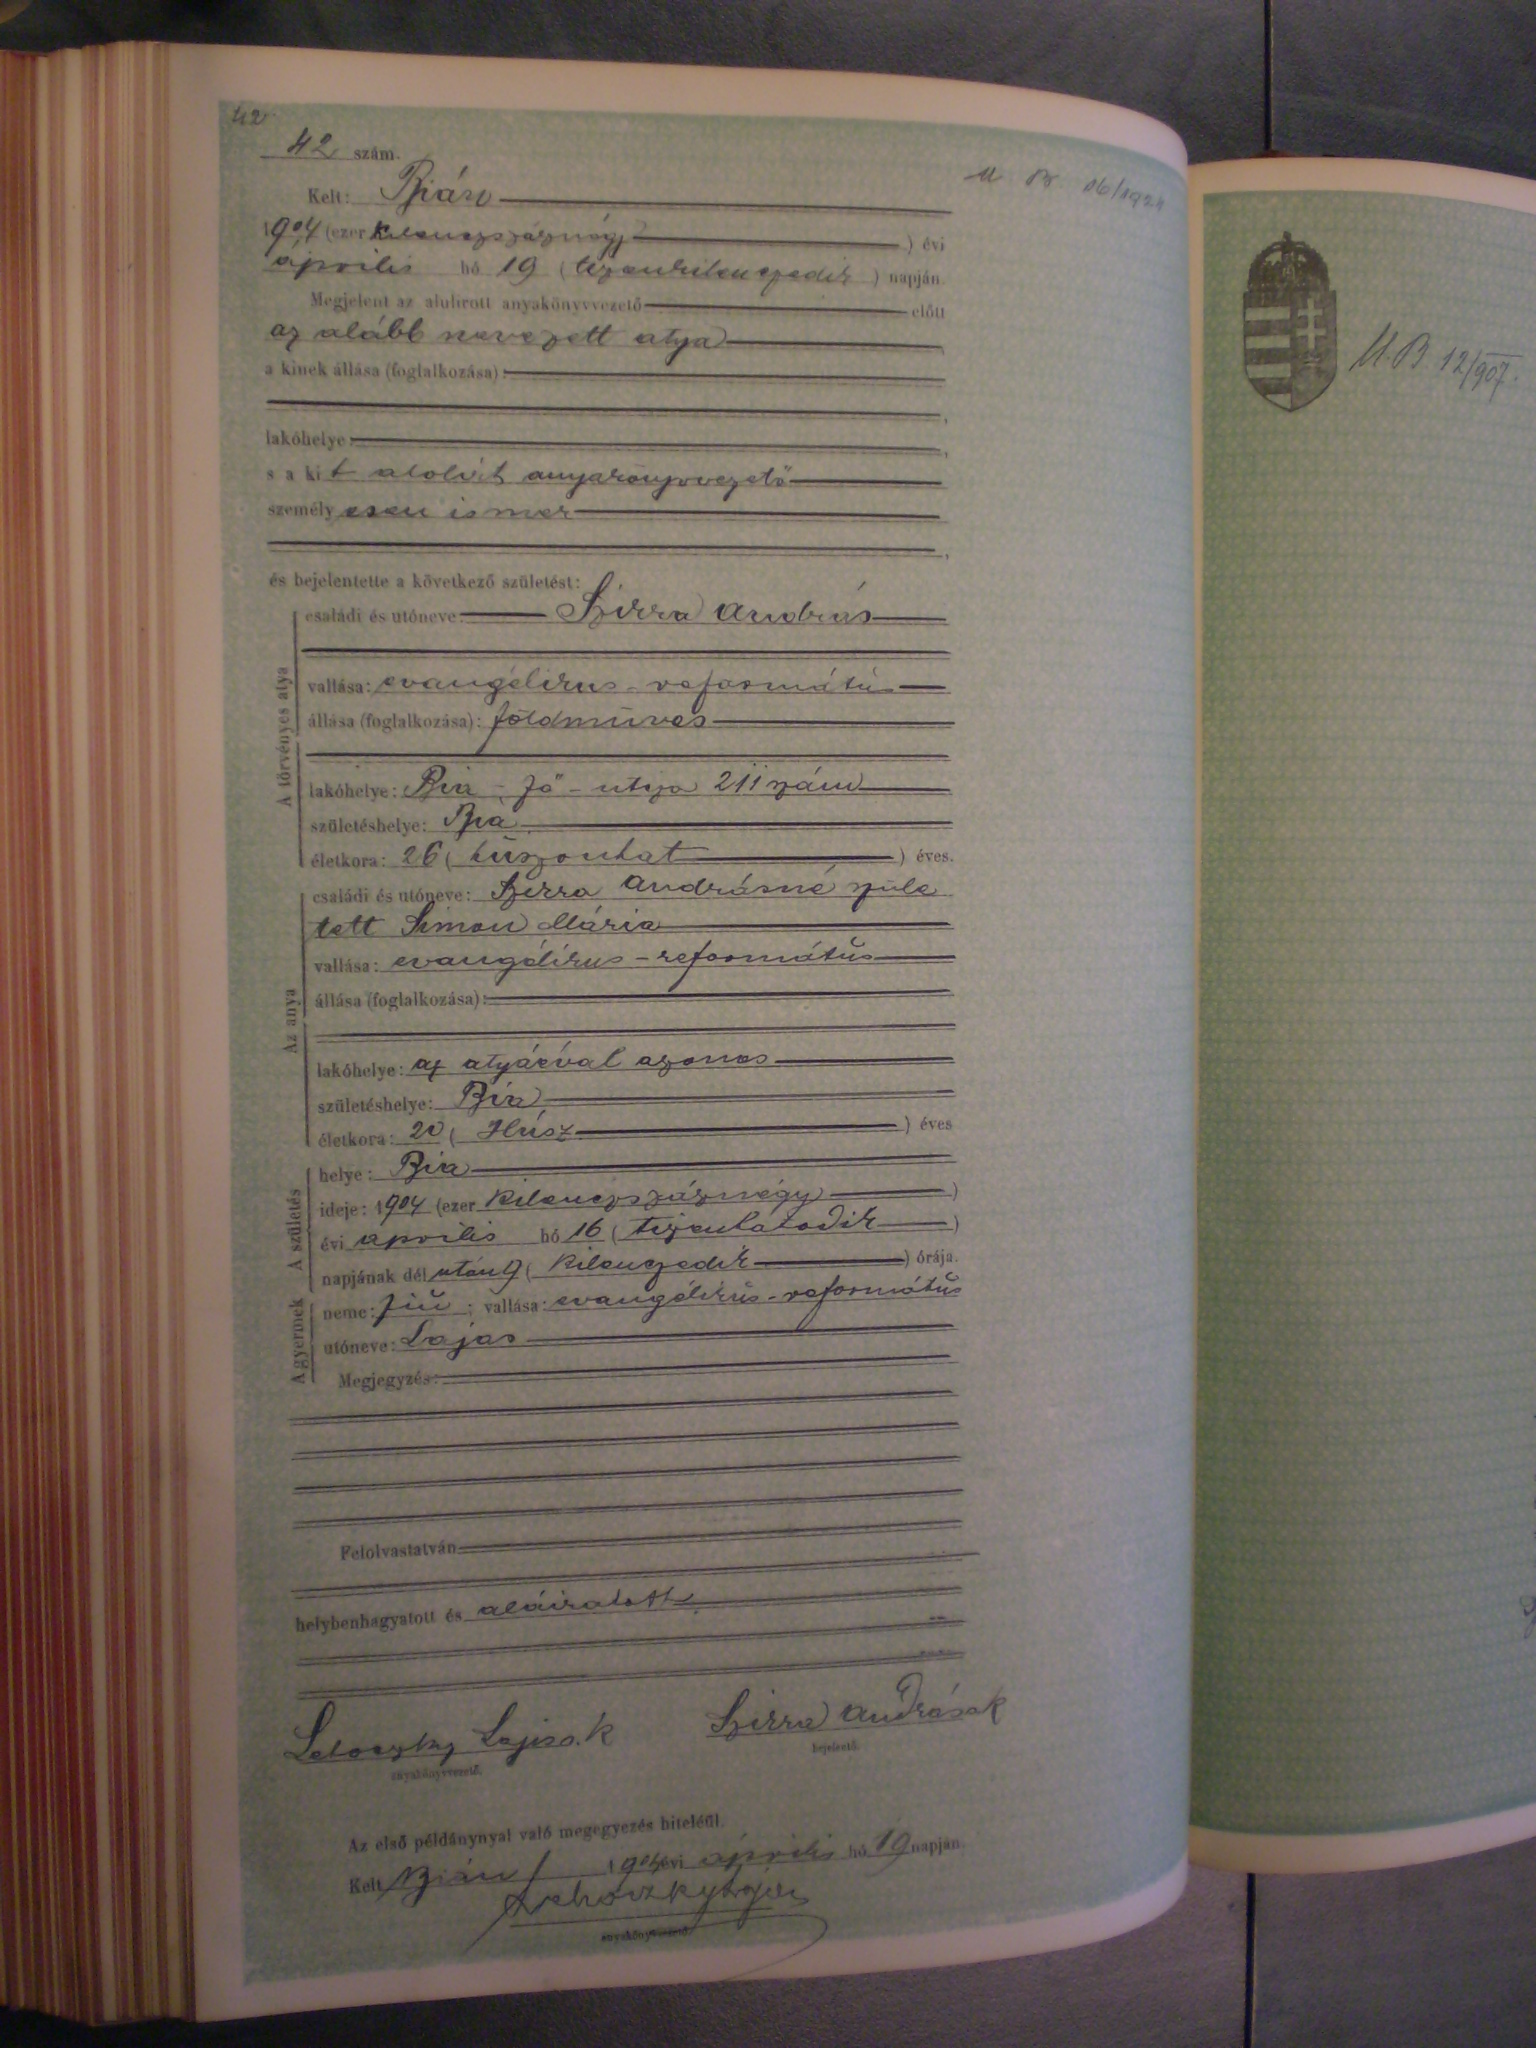 42
42 szám.
Kelt: Bián
1904 (ezer kilenczszáznégy) évi
április hó 19 (tizenkilenczedik) napján.
Megjelent az alulirott anyakönyvvezető előtt
az alább nevezett atya,
a kinek állása (foglalkozása):
lakóhelye:
s a kit alolirt anyakönyvvezető
személyesen ismer
és bejelentette a következő születést:
A törvényes atya
családi és utóneve: Szirra András
vallása: evangélikus-református
állása (foglalkozása): földmüves
lakóhelye: Bia - Fő - utcza 211 szám
születéshelye: Bia
életkora: 26 (huszonhat) éves.
Az anya
családi és utóneve: Szirra Andrásné szüle
tett Simon Mária
vallása: evangélikus-református
állása (foglalkozása):
lakóhelye: az atyáéval azonos
születéshelye: Bia
életkora: 20 (Húsz) éves
A születés
helye: Bia
ideje: 1904 (ezer kilenczszáznégy)
évi április hó 16 (tizenhatodik)
napjának dél után 9 (kilenczedik) órája.
A gyermek
neme: fiú; vallása: evangélikus-református
utóneve: Lajos
Megjegyzés:
Felolvastatván
helybenhagyatott és aláiratott.
Lajos s. k. Szirra András s k
anyakönyvvezető. bejelentő.
Az első példánynyal való megegyezés hiteléül.
Kelt Bián, 1904 évi április hó 19 napján
anyakönyvvezető.
U. B. 12/907.